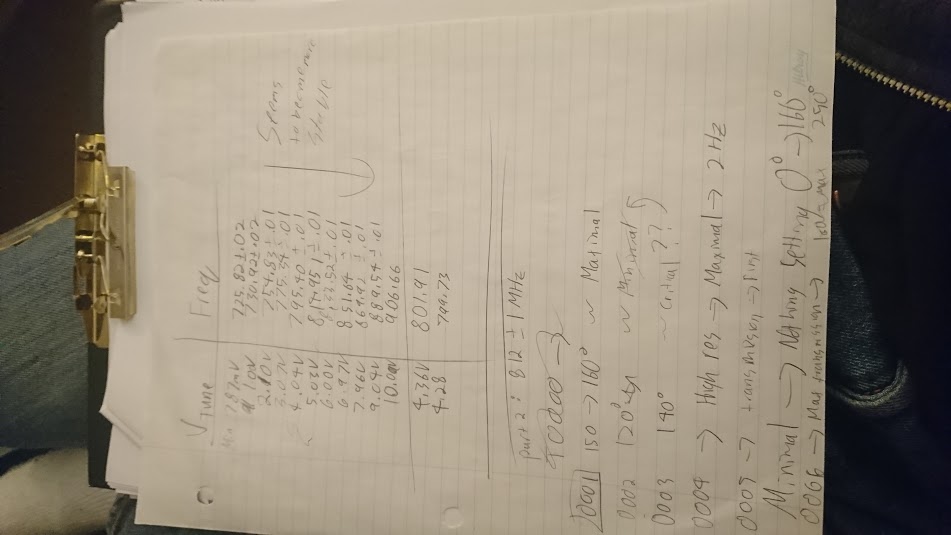 V tune Freq
787mV 735.82±.02
1.10V 730.92±.02
2.10V 754.83±.01
3.07V 775.54±.01
4.04V 795.40±.01
5.03V 814.951±.01
6.00V 833.52±.01
6.97V 851.64±.01
7.96V 869.92±.01
9.04V 889.54±.01
10.00V 906.66
Seems
to become more
Stable
4.36V 801.91
4.28 799.73
part 2: 812 ± 1 MHz
0001 150 → 160° ~ Maximal
0002 120° ~ Minimal
0003 140° ~ critical??
0004 → High res → Maximal → 2 Hz
0005 → transmission →
Minimal → Nothing Setting 0° → 160°
0006 → Max transmission → 290°